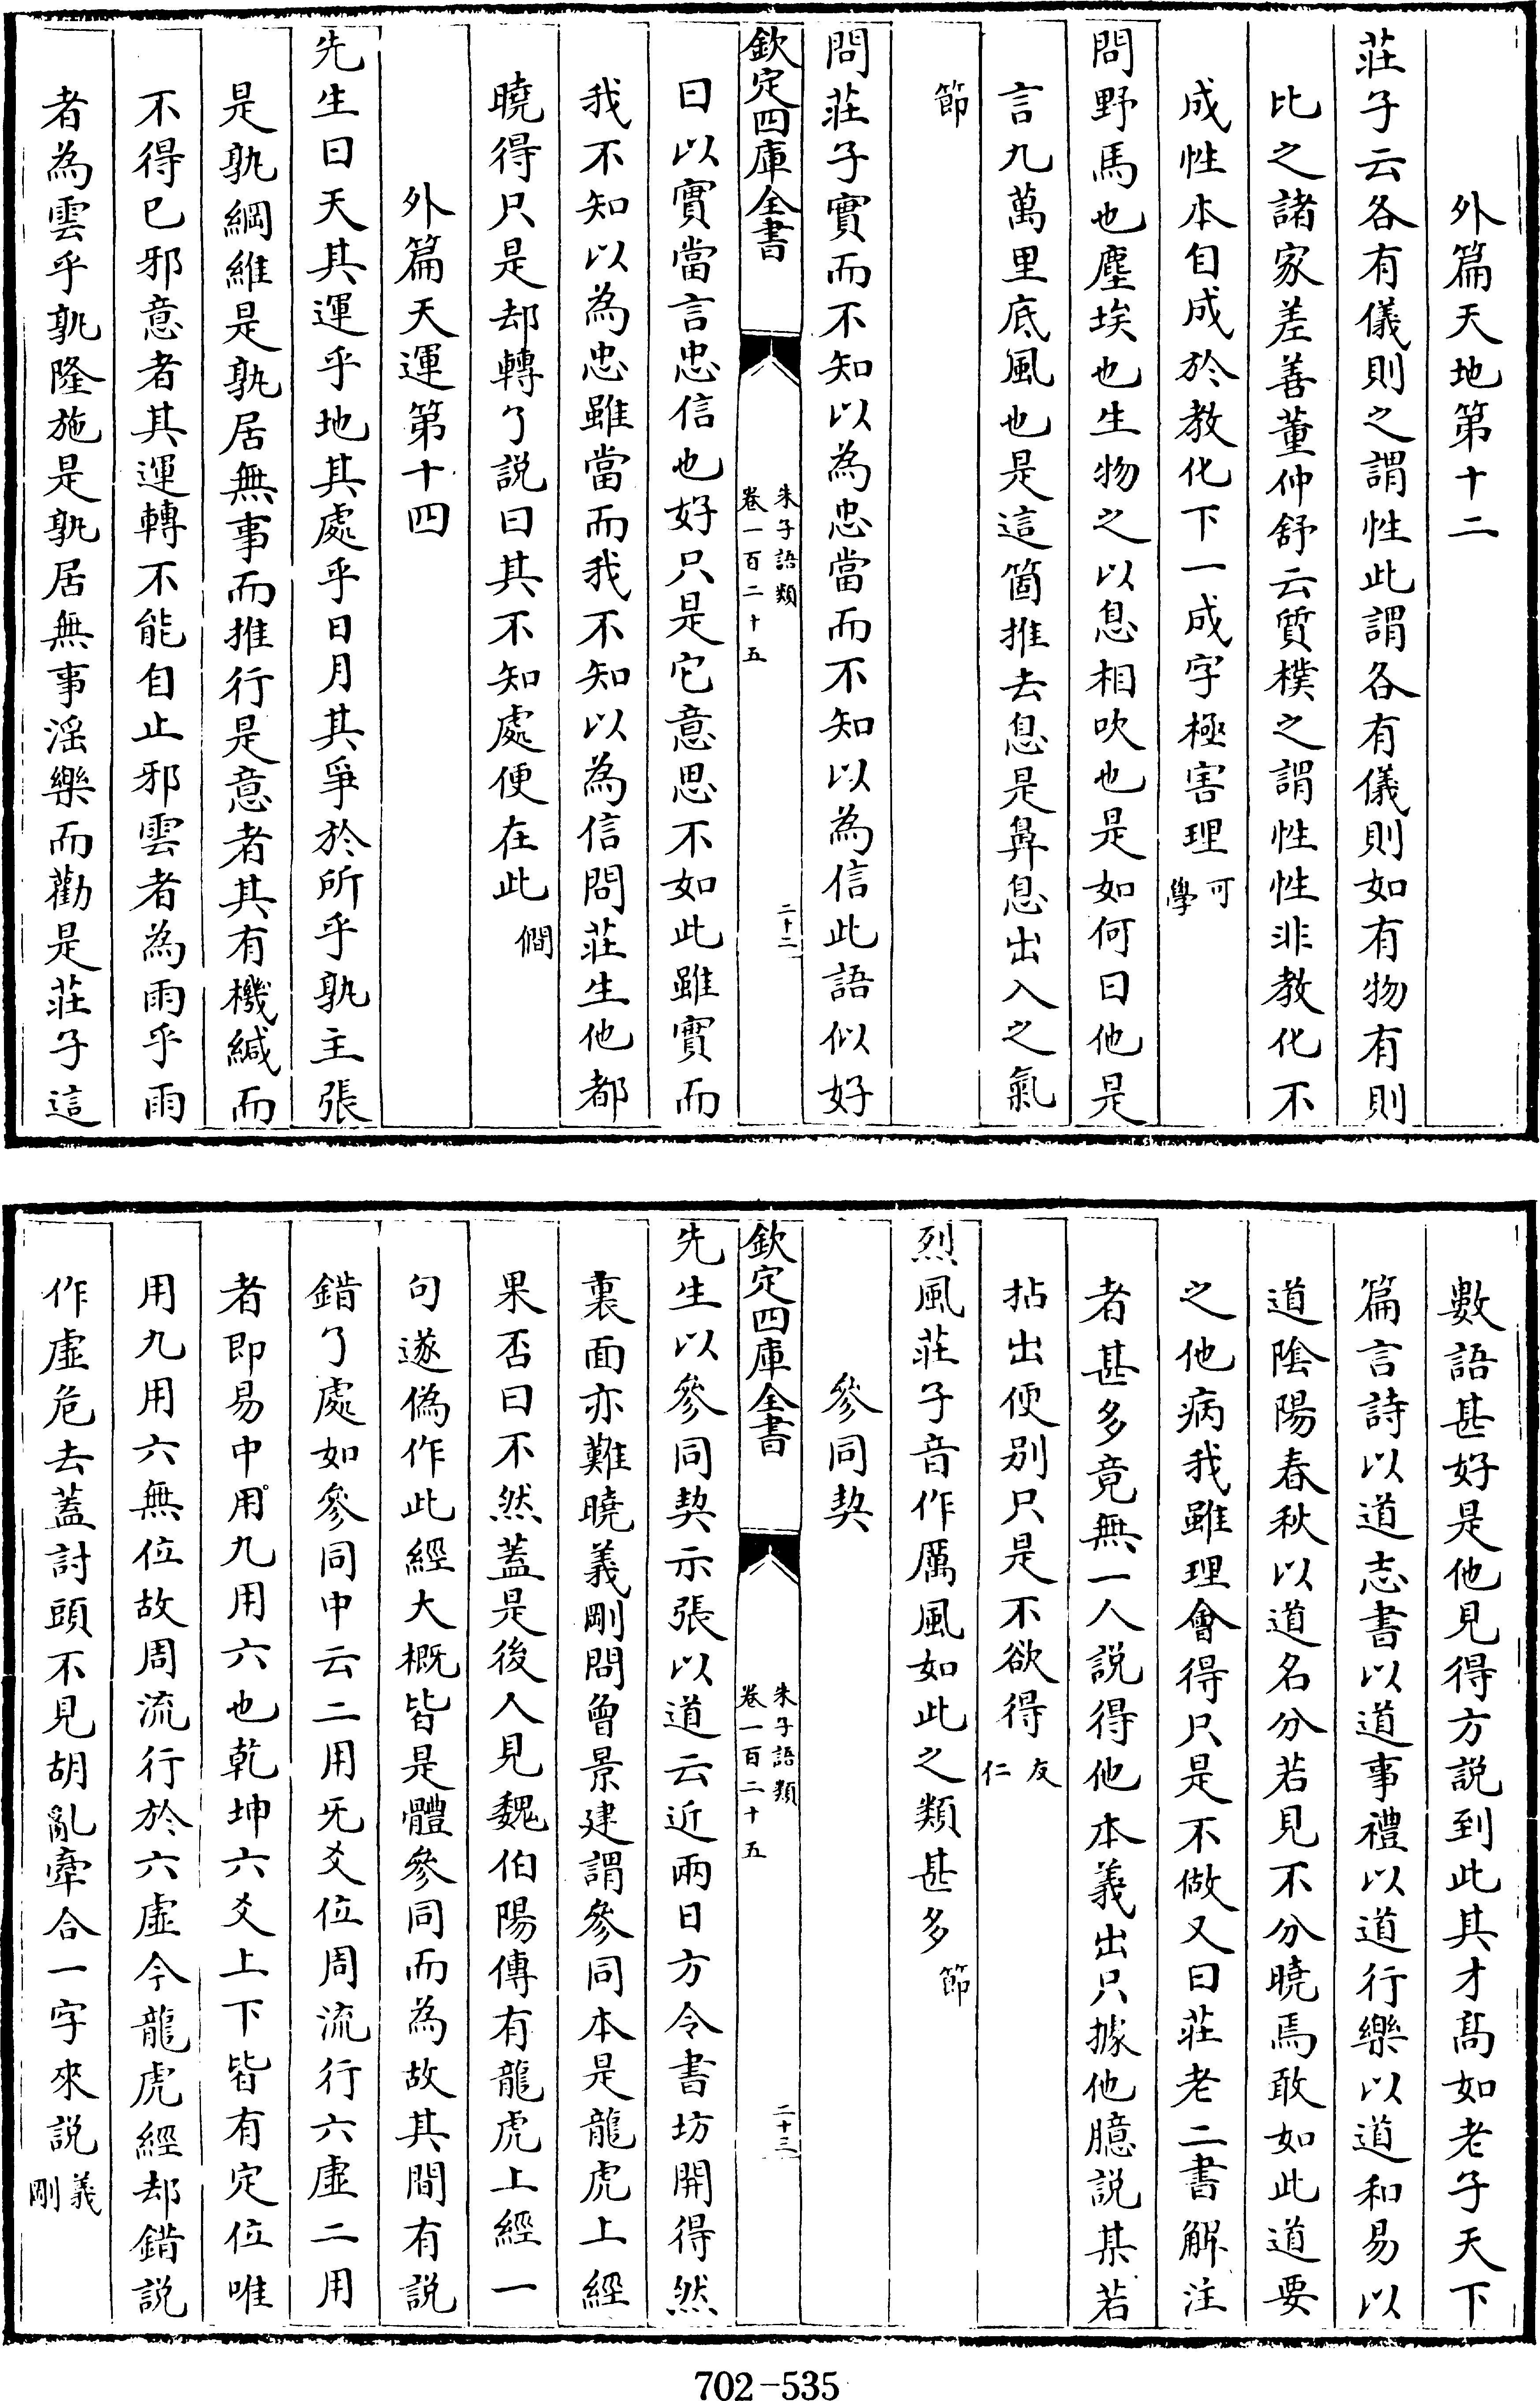 外篇天地第十二
莊子云各有儀則之謂性此謂各有儀則如有物有則
比之諸家差善董仲舒云質樸之謂性性非教化不
成性本自成於教化下一成字極害理可學
問野馬也塵埃也生物之以息相吹也是如何曰他是
言九萬里底風也是這箇推去息是鼻息出入之氣
節
問莊子實而不知以為忠當而不知以為信此語似好
欽定四庫全書
朱子語類
卷一百二十五
二十二
曰以實當言忠信也好只是它意思不如此雖實而
我不知以為忠雖當而我不知以為信問莊生他都
曉得只是却轉了説曰其不知處便在此僩
外篇天運第十四
先生曰天其運乎地其處乎日月其爭於所乎孰主張
是孰綱維是孰居無事而推行是意者其有機緘而
不得已邪意者其運轉不能自止邪雲者為雨乎雨
者為雲乎孰隆施是孰居無事淫樂而勸是莊子這
數語甚好是他見得方説到此其才髙如老子天下
篇言詩以道志書以道事禮以道行樂以道和易以
道陰陽春秋以道名分若見不分曉焉敢如此道要
之他病我雖理會得只是不做又曰莊老二書解注
者甚多竟無一人説得他本義出只據他臆説某若
拈出便别只是不欲得友仁
烈風莊子音作厲風如此之類甚多節
參同契
欽定四庫全書
朱子語類
卷一百二十五
二十三
先生以參同契示張以道云近兩日方令書坊開得然
裏面亦難曉義剛問曾景建謂參同本是龍虎上經
果否曰不然蓋是後人見魏伯陽傳有龍虎上經一
句遂偽作此經大概皆是體參同而為故其間有説
錯了處如參同中云二用旡爻位周流行六虛二用
者即易中用九用六也乾坤六爻上下皆有定位唯
用九用六無位故周流行於六虛今龍虎經却錯説
作虛危去蓋討頭不見胡亂牽合一字來説義剛
702-535